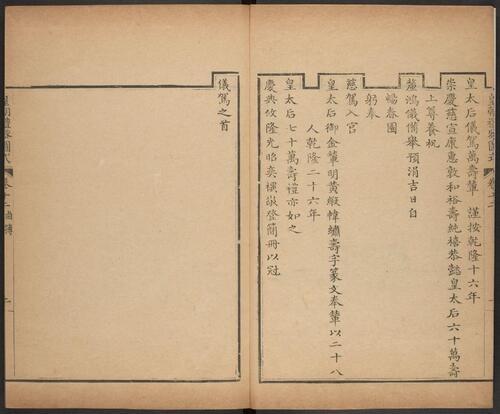 皇太后儀駕萬壽輦 謹按乾隆十六年
崇慶慈宣康惠敦和裕壽純禧恭懿皇太后六十萬壽
上尊養祝
釐鴻儀備舉預涓吉日自
暢春園
躬奉
慈駕入宮
皇太后御金輦明黃緞幃繡壽字篆文奉輦以二十八
人乾隆二十六年
皇太后七十萬壽禮亦如之
慶典攸隆光昭奕禩敬登簡冊以冠
儀駕之首
皇朝禮器圖式
卷十二